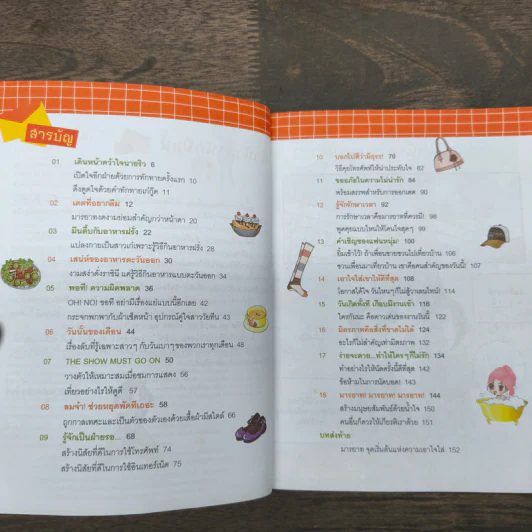 สารบัญ
01 เดินหน้าคว้าใจนายริว 6
เปิดใจอีกฝ่ายด้วยการทักทายครั้งแรก 10
ดึงดูดใจด้วยคำทักทายเก๋กู๊ด 11
02 เดตที่อยากลืม 12
มารยาทงดงามย่อมสำคัญกว่าหน้าตา 20
03 มึนตึ้บกับอาหารฝรั่ง 22
แปลงกายเป็นสาวเก๋เพราะรู้วิธีกินอาหารฝรั่ง 28
04 เสน่ห์ของอาหารตะวันออก 30
งามสง่าดั่งราชินี แค่รู้วิธีกินอาหารแบบตะวันออก 34
05 พอที! ความผิดพลาด 36
OH! NO! ขอที อย่ามีเรื่องแย่แบบนี้อีกเลย 42
กระจกพกพากับผ้าเช็ดหน้า อุปกรณ์คู่ใจสาววัยทีน 43
06 วันนั้นของเดือน 44
เรื่องลับที่รู้เฉพาะสาวๆ กับวันเบาๆ ของพวกเราทุกเดือน 48
07 THE SHOW MUST GO ON 50
วางตัวให้เหมาะสมเมื่อชมการแสดง 56
เที่ยวอย่างไรให้ดูดี 57
08 ลมจ๋า! ช่วยหยุดพัดทีเถอะ 58
ถูกกาลเทศะและเป็นตัวของตัวเองด้วยเสื้อผ้ามีสไตล์ 66
09 รู้จักเป็นฝ่ายรอ... 68
สร้างนิสัยที่ดีในการใช้โทรศัพท์ 74
สร้างนิสัยที่ดีในการใช้อินเทอร์เน็ต 75
10 บอกไปสิว่ามีธุระ! 76
วิธีคุยโทรศัพท์ให้น่าประทับใจ 82
11 ขออภัยในความไม่น่ารัก 84
พร้อมสรรพสำหรับการออกเดต 90
12 รู้จักรักษาเวลา 92
การรักษาเวลาคือมารยาทที่ควรมี! 98
พูดคุยแบบไหนให้โดนใจสุดๆ 99
13 คำเชิญของแฟนหนุ่ม! 100
ยิ้มเข้าไว้! ถ้าเพื่อนชายชวนไปเที่ยวบ้าน 106
ชวนเพื่อนมาเที่ยวบ้าน เขาคือคนสำคัญของวันนี้! 107
14 เอาใจใส่เขาให้ดีที่สุด 108
โอกาสได้ใจ วันไหนๆ ก็ไม่สู้วาเลนไทน์! 114
15 วันเกิดทั้งที เกือบมีงานเข้า 118
ใครกันนะ คือดาวเด่นของงานวันนี้ 122
16 มิตรภาพคือสิ่งที่ขาดไม่ได้ 124
อะไรก็ไม่สำคัญเท่ามิตรภาพ 132
17 ง่ายจะตาย...ทำให้ใครๆ ก็ไม่รัก 134
ทำอย่างไรให้นัดครั้งนี้ดีที่สุด 142
ข้อห้ามในการนัดบอด! 143
18 มารยาท! มารยาท! มารยาท! 144
สร้างมนุษยสัมพันธ์ด้วยน้ำใจ 150
คนอื่นก็ควรให้เกียรติเราด้วย 151
บทส่งท้าย
มารยาท จุดเริ่มต้นแห่งความเอาใจใส่ 152